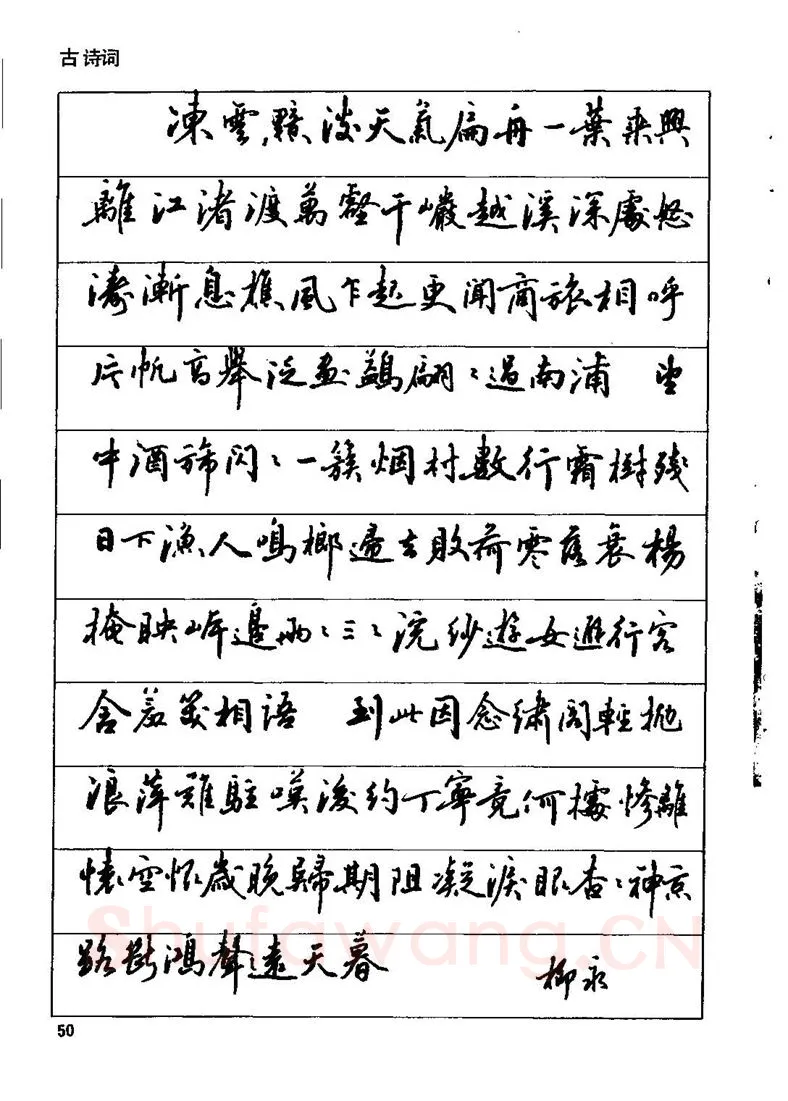 古诗词
凍雲黯淡天氣扁舟一葉乘興
離江渚渡萬壑千巖越溪深處怒
濤漸息樵風乍起更聞商旅相呼
片帆高舉泛畫鷁翩〻過南浦 望
中酒旆閃〻一簇烟村數行霜樹殘
日下漁人鳴榔歸去敗荷零落衰楊
掩映岸邊兩〻三〻浣紗遊女避行客
含羞笑相語 到此因念繡閣輕拋
浪萍難駐嘆後約丁寧竟何據慘離
懷空恨歲晚歸期阻凝淚眼杳〻神京
路斷鴻聲遠天暮
柳永
50
Shufawang.CN